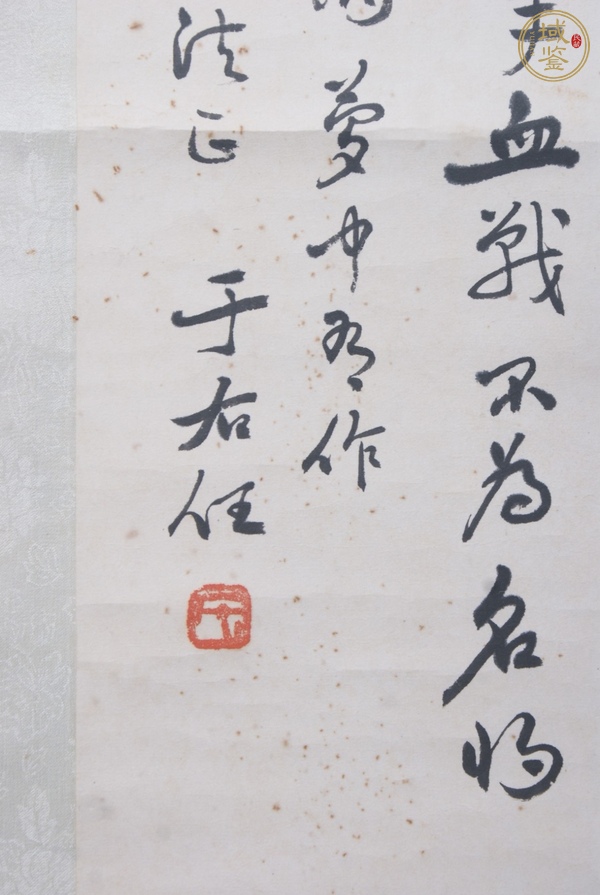 血戰不為名將
夢中有作
法正 于右任
域鉴